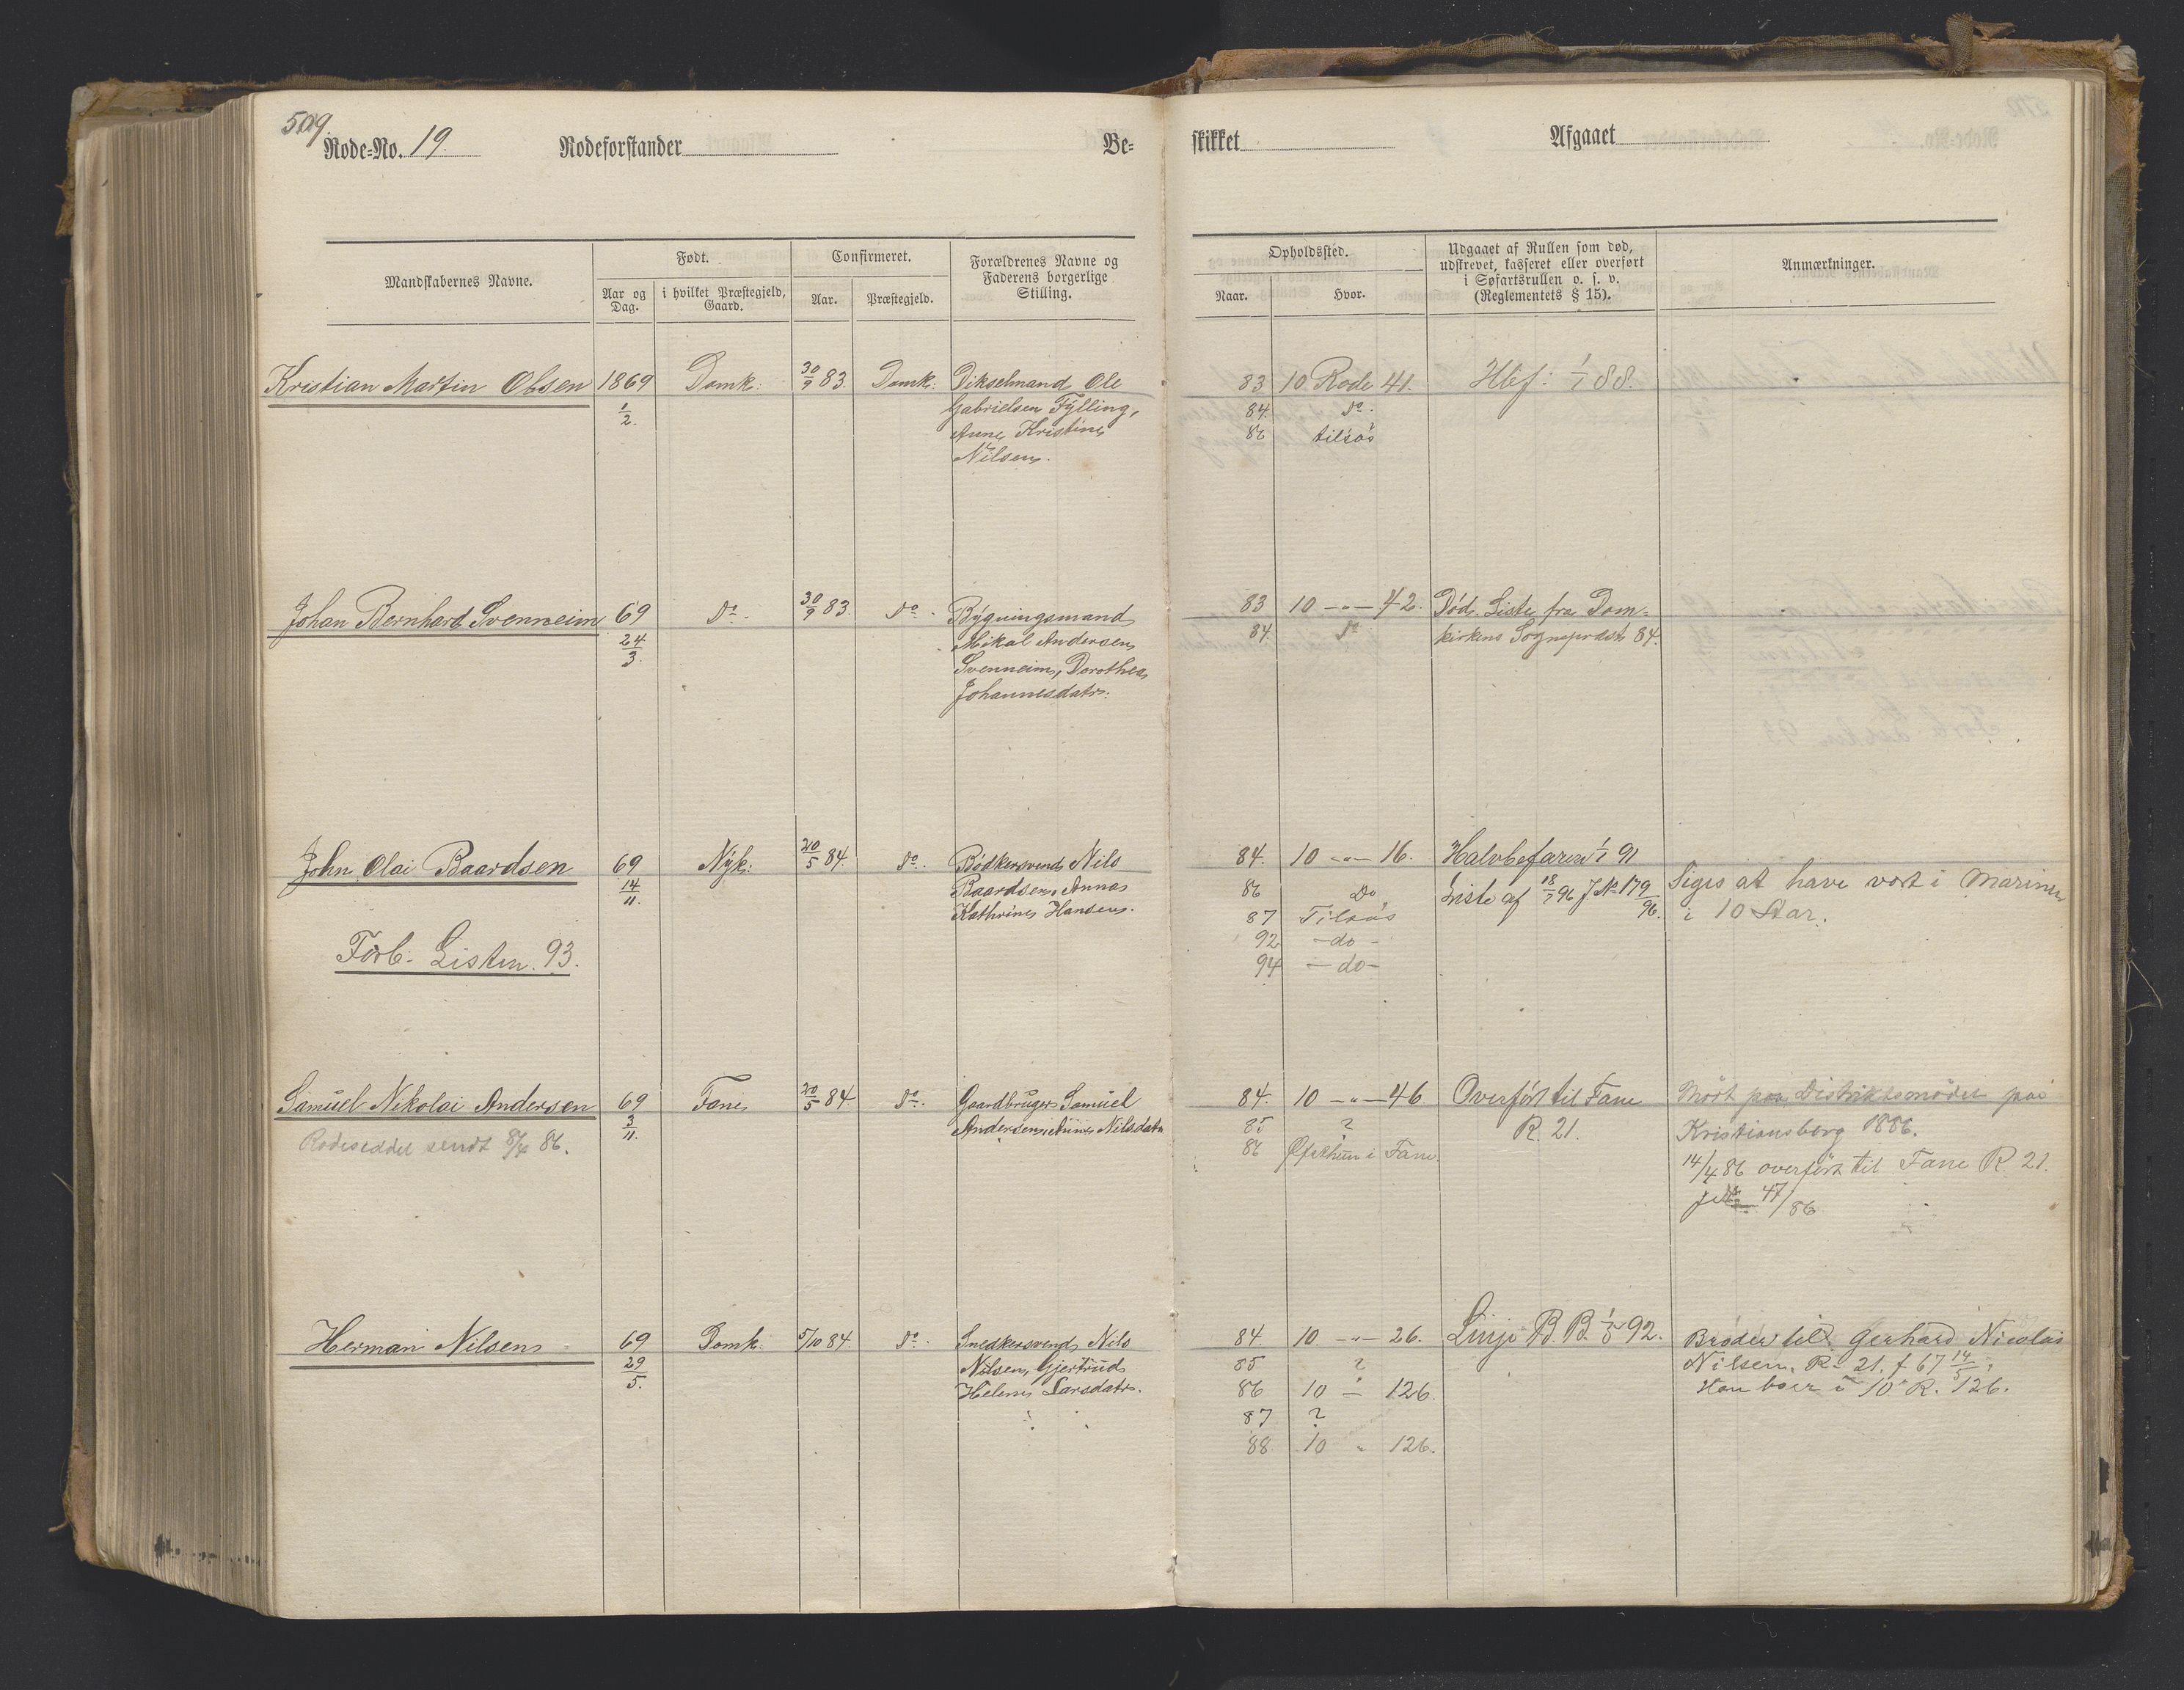 509.
Rode-No. 19. Rodeforstander Be-
skikket Afgaaet
Mandskabernes Navne.
Født.
Aar og Dag.
i hvilket Præstegjeld, Gaard.
Confirmeret.
Aar.
Præstegjeld.
Forældrenes Navne og
Faderens borgerlige
Stilling.
Opholdssted.
Naar.
Hvor.
Udgaaet af Rullen som død,
udskrevet, kasseret eller overført
i Søfartsrullen o. s. v.
(Reglementets § 15).
Anmærkninger.
Kristian Martin Olsen 1869 Domk: 30/9 83. Domk: Dikselmand Ole
1/2. Gabrielsen Fylling,
Anne Kristine
Nilsen.
83 10 Rode 41. Hbf: 1/1 88.
84. do.
86 tilsøs
Johan Bernhard Svenneim 69 do. 30/9 83. do. Bygningsmand
24/3. Mikal Andersen
Svenneim, Dorothea
Johannesdatr.
83 10 -"- 42. Død. Liste fra Dom-
84. do kirkens Sognepræst 84.
John Olai Baardsen 69 Nyk: 20/5 84. do. Bødkersvend Nils
14/11. Baardsen, Anna
Kathrine Hansen.
Forb. Listen. 93.
84. 10 -"- 16. Halvbefaren 1/1 91
86 Do Liste af 18/7 96 J No 179/96. Siges at have vært i Marinen
87 Tilsøs i 10 Aar.
92 -do-
94 -do-
Samuel Nikolai Andersen 69 Fane 20/5 84. do. Gaardbruger Samuel
3/11. Andersen, Anne Nilsdatr
Rodeseddel sendt 8/4 86.
84. 10 -"- 46 Overført til Fane Mødt paa Distriktsmødet paa
85 ? R. 21. Kristiansborg 1886.
86 i Fane. 14/4 86 overført til Fane R. 21.
J No 47/86
Herman Nilsen 69 Domk. 5/10 84 do. Snedkersvend Nils
29/5. Nilsen, Gjertrud
Helene Larsdatr.
84. 10 -"- 26. Linje B. B. 92. Broder til Gerhard Nicolai
85 ? Nilsen. R. 21. f 67 14/5.
86 10 - 126. Han boer i 10 R. 126.
87 ?
88 10 " 126.